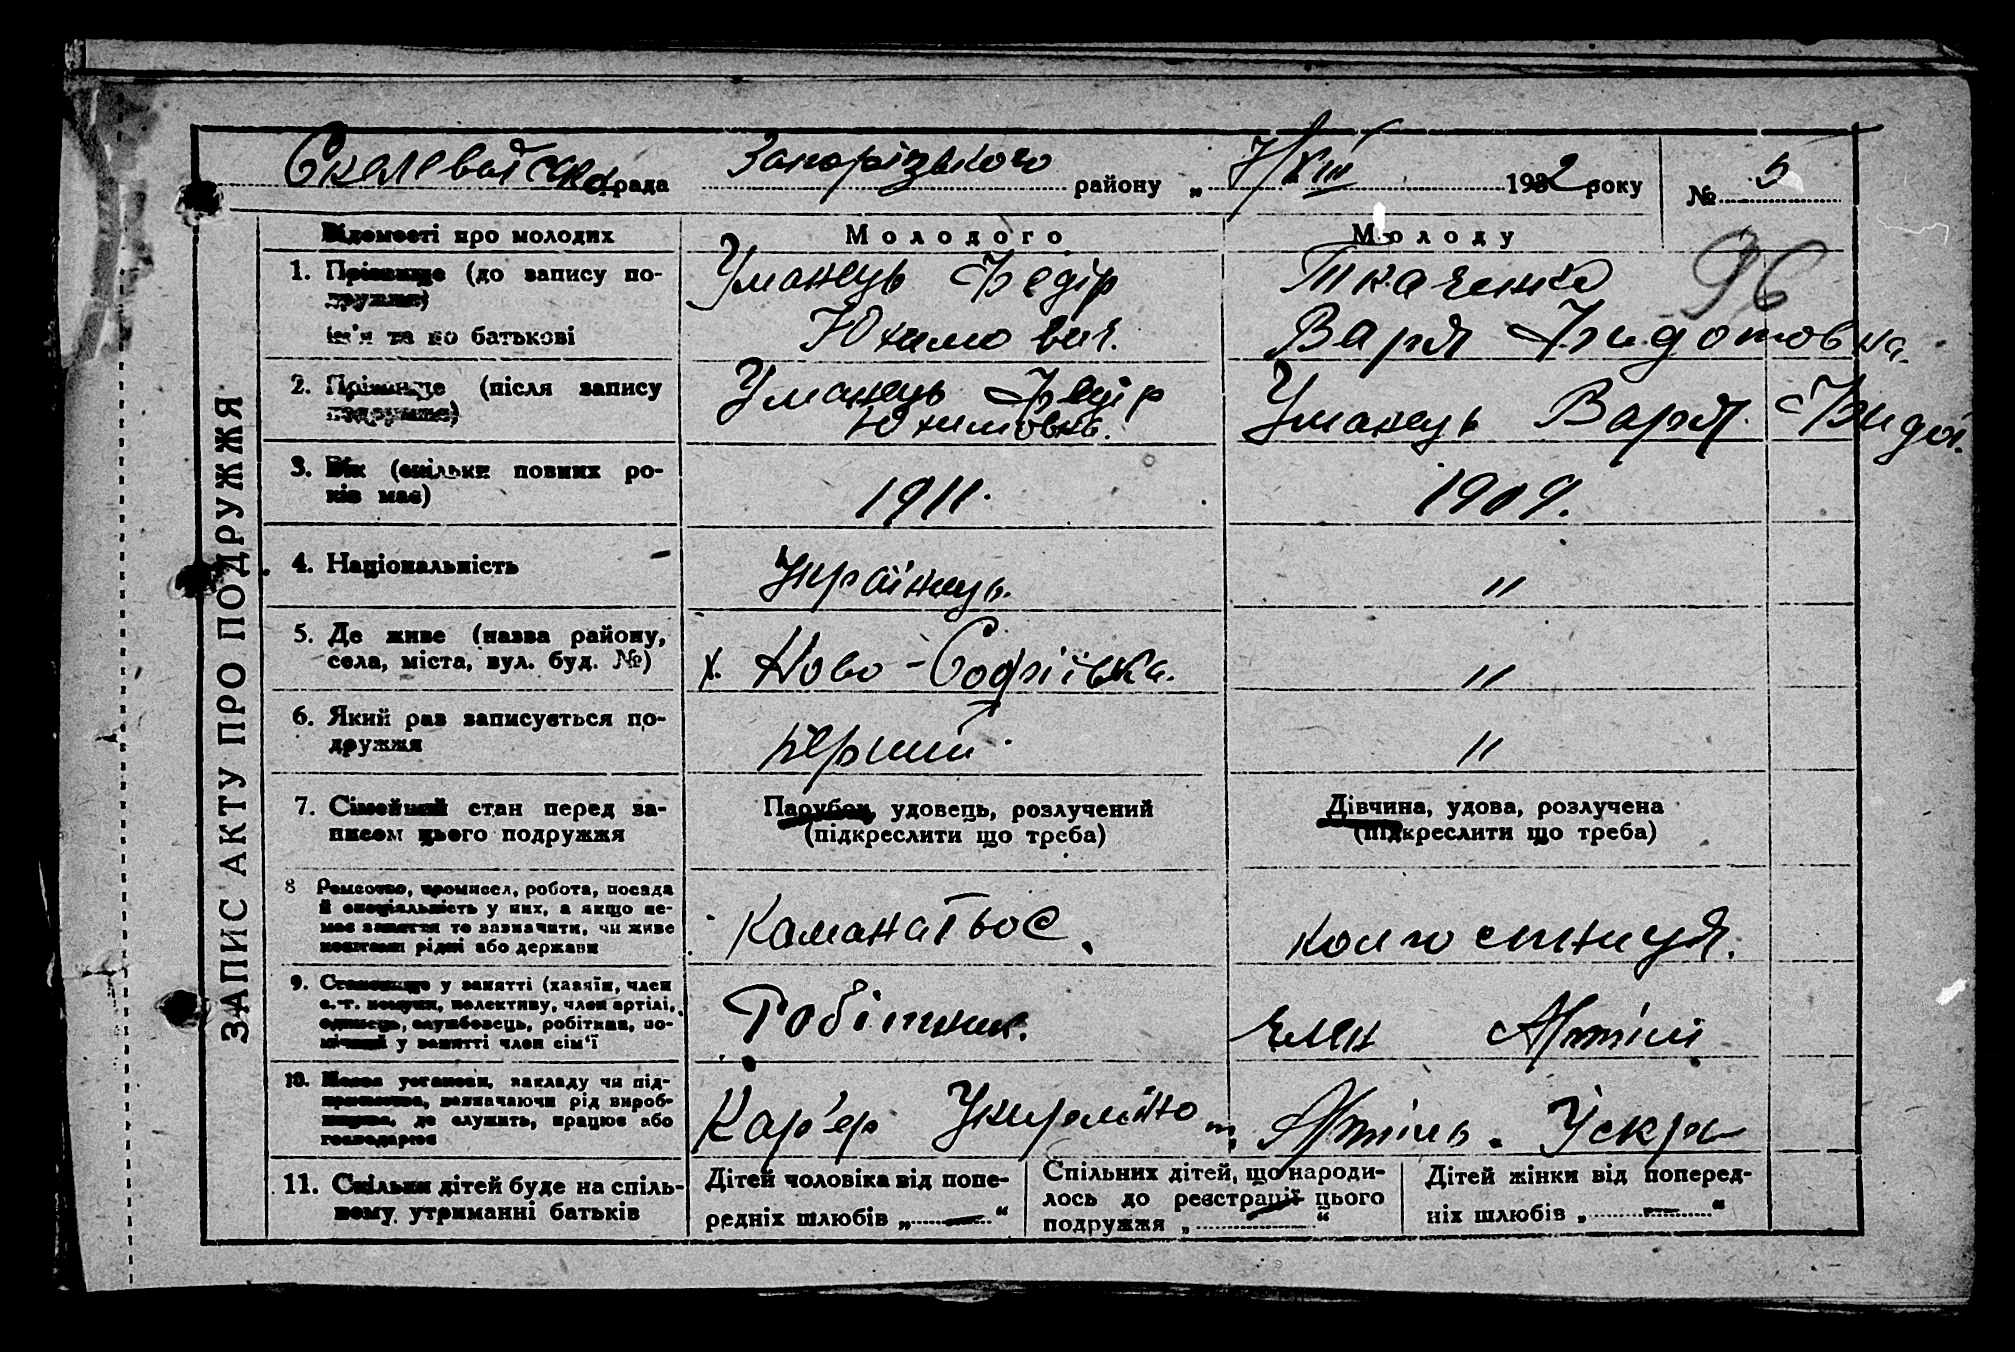 Скелеватська рада Запорізького району „ 7/VIII 1932 року № 5
96
ЗАПИС АКТУ ПРО ПОДРУЖЖЯ
Відомості про молодих Молодого Молоду
1. Прізвище (до запису по-
дружжя)
ім'я та по батькові
Уманець Федір
Юхимович.
Ткаченко
Варя Федотовна.
2. Прізвище (після запису
подружжя)
Уманець Федір
Юхимович.
Уманець Варя Федот.
3. Вік (скільки повних ро-
ків має)
1911.
1909.
4. Національність
Українець.
"
5. Де живе (назва району,
села, міста, вул. буд. №)
х. Ново-Софіївка.
"
6. Який раз записується по-
дружжя
перший
"
7. Сімейний стан перед за-
писом цього подружжя
Парубок, удовець, розлучений
(підкреслити що треба)
Дівчина, удова, розлучена
(підкреслити що треба)
8 Ремесство, промисел, робота, посада
й спеціяльність у них, а якщо не-
має заняття то зазначити, чи живе
коштами рідні або держави
колгоспниця.
9. Становище у занятті (хазяїн, член
с.-г. комуни, колективу, член артілі,
одинець, службовець, робітник, по-
мічний у занятті член сім'ї
Робітник.
член Артілі
10. Назва установи, закладу чи під-
приємства, зазначаючи рід вироб-
ництва, де служить, працює або
господарює
Кар'єр
Артіль. Іскра
11. Скільки дітей буде на спіль-
ному утриманні батьків
Дітей чоловіка від попе-
редніх шлюбів „ — “
Спільних дітей, що народи-
лось до реєстрації цього
подружжя „ — “
Дітей жінки від поперед-
ніх шлюбів „ — “